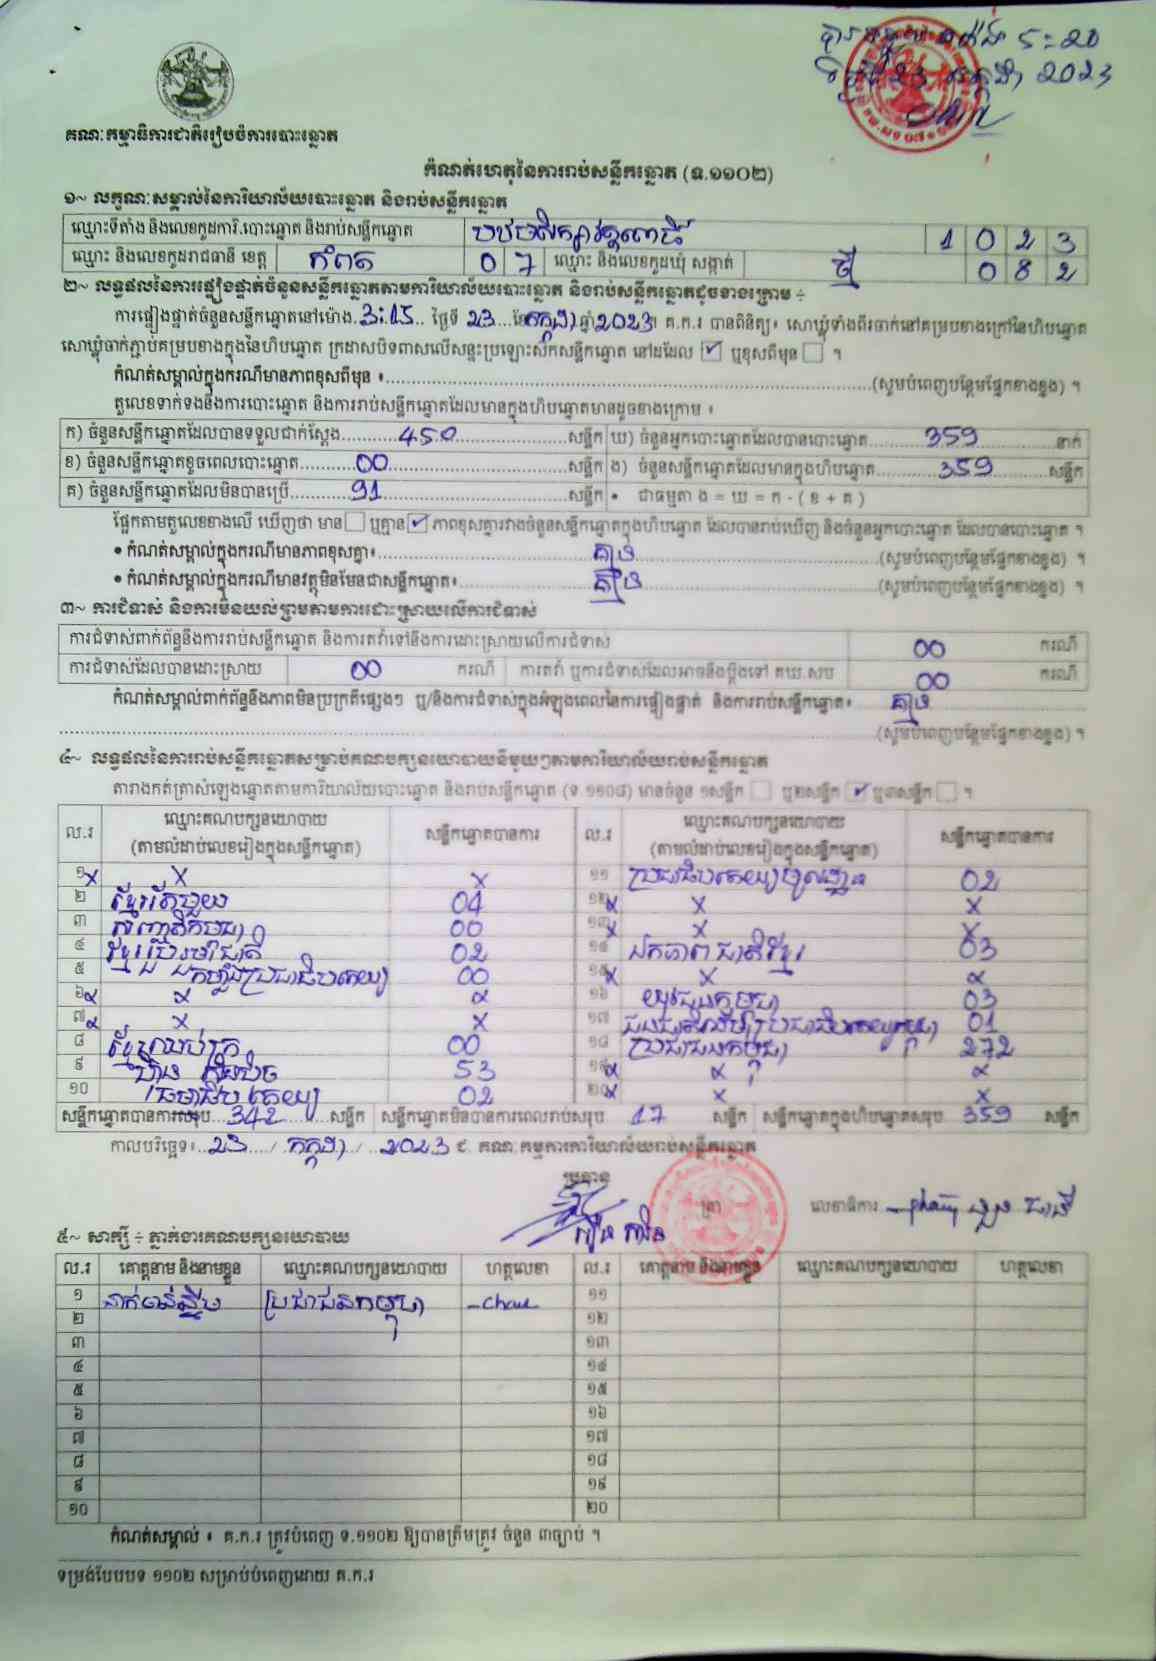 5:20
23 កក្កដា 2023
គណៈកម្មាធិការជាតិរៀបចំការបោះឆ្នោត
កំណត់ហេតុនៃការរាប់សន្លឹកឆ្នោត (ទ.១១០២)
១~ លក្ខណៈសម្គាល់នៃការិយាល័យបោះឆ្នោត និងរាប់សន្លឹកឆ្នោត
ឈ្មោះទីតាំង និងលេខកូដការិ.បោះឆ្នោត និងរាប់សន្លឹកឆ្នោត 1 0 2 3
ឈ្មោះ និងលេខកូដរាជធានី ខេត្ត កំពត 0 7 ឈ្មោះ និងលេខកូដឃុំ សង្កាត់ ថ្មី 0 8 2
២~ លទ្ធផលនៃការផ្ទៀងផ្ទាត់ចំនួនសន្លឹកឆ្នោតតាមការិយាល័យបោះឆ្នោត និងរាប់សន្លឹកឆ្នោតដូចខាងក្រោម ÷
ការផ្ទៀងផ្ទាត់ចំនួនសន្លឹកឆ្នោតនៅម៉ោង 3:15 ថ្ងៃទី 23 ខែ កក្កដា ឆ្នាំ 2023។ គ.ក.រ បានពិនិត្យ៖ សោឃ្លុំទាំងពីរចាក់នៅគម្របខាងក្រៅនៃហិបឆ្នោត
សោឃ្លុំចាក់ភ្ជាប់គម្របខាងក្នុងនៃហិបឆ្នោត ក្រដាសបិទពាសលើសន្ទះប្រឡោះស៊កសន្លឹកឆ្នោត នៅដដែល ☑ ឬខុសពីមុន ☐ ។
កំណត់សម្គាល់ក្នុងករណីមានភាពខុសពីមុន ៖ (សូមបំពេញបន្ថែមផ្នែកខាងខ្នង) ។
តួលេខទាក់ទងនឹងការបោះឆ្នោត និងការរាប់សន្លឹកឆ្នោតដែលមានក្នុងហិបឆ្នោតមានដូចខាងក្រោម ៖
ក) ចំនួនសន្លឹកឆ្នោតដែលបានទទួលជាក់ស្តែង 450 សន្លឹក ឃ) ចំនួនអ្នកបោះឆ្នោតដែលបានបោះឆ្នោត 359 នាក់
ខ) ចំនួនសន្លឹកឆ្នោតខូចពេលបោះឆ្នោត 00 សន្លឹក ង) ចំនួនសន្លឹកឆ្នោតដែលមានក្នុងហិបឆ្នោត 359 សន្លឹក
គ) ចំនួនសន្លឹកឆ្នោតដែលមិនបានប្រើ 91 សន្លឹក • ជាធម្មតា ង = ឃ = ក - ( ខ + គ )
ផ្អែកតាមតួលេខខាងលើ ឃើញថា មាន ☐ ឬគ្មាន ☑ ភាពខុសគ្នារវាងចំនួនសន្លឹកឆ្នោតក្នុងហិបឆ្នោត ដែលបានរាប់ឃើញ និងចំនួនអ្នកបោះឆ្នោត ដែលបានបោះឆ្នោត ។
• កំណត់សម្គាល់ក្នុងករណីមានភាពខុសគ្នា៖ គ្មាន (សូមបំពេញបន្ថែមផ្នែកខាងខ្នង) ។
• កំណត់សម្គាល់ក្នុងករណីមានវត្ថុមិនមែនជាសន្លឹកឆ្នោត៖ គ្មាន (សូមបំពេញបន្ថែមផ្នែកខាងខ្នង) ។
៣~ ការជំទាស់ និងការមិនយល់ព្រមតាមការដោះស្រាយលើការជំទាស់
ការជំទាស់ពាក់ព័ន្ធនឹងការរាប់សន្លឹកឆ្នោត និងការតវ៉ាទៅនឹងការដោះស្រាយលើការជំទាស់ 00 ករណី
ការជំទាស់ដែលបានដោះស្រាយ 00 ករណី ការតវ៉ា ឬការជំទាស់ដែលអាចនឹងប្តឹងទៅ គឃ.សប 00 ករណី
កំណត់សម្គាល់ពាក់ព័ន្ធនឹងភាពមិនប្រក្រតីផ្សេងៗ ឬ/និងការជំទាស់ក្នុងអំឡុងពេលនៃការផ្ទៀងផ្ទាត់ និងការរាប់សន្លឹកឆ្នោត៖ គ្មាន
(សូមបំពេញបន្ថែមផ្នែកខាងខ្នង) ។
៤~ លទ្ធផលនៃការរាប់សន្លឹកឆ្នោតសម្រាប់គណបក្សនយោបាយនីមួយៗតាមការិយាល័យរាប់សន្លឹកឆ្នោត
តារាងកត់ត្រាសំឡេងឆ្នោតតាមការិយាល័យបោះឆ្នោត និងរាប់សន្លឹកឆ្នោត (ទ ១១០៨) មានចំនួន ១សន្លឹក ☐ ឬ២សន្លឹក ☑ ឬ៣សន្លឹក ☐ ។
ល.រ ឈ្មោះគណបក្សនយោបាយ (តាមលំដាប់លេខរៀងក្នុងសន្លឹកឆ្នោត) សន្លឹកឆ្នោតបានការ ល.រ ឈ្មោះគណបក្សនយោបាយ (តាមលំដាប់លេខរៀងក្នុងសន្លឹកឆ្នោត) សន្លឹកឆ្នោតបានការ
១ x x x ១១ ប្រជាធិបតេយ្យមូលដ្ឋាន 02
២ ខ្មែរតែមួយ 04 ១២ x x x
៣ សញ្ជាតិកម្ពុជា 00 ១៣ x x x
៤ ខ្មែររួបរួមជាតិ 02 ១៤ ឯកភាពជាតិខ្មែរ 03
៥ កម្លាំងប្រជាធិបតេយ្យ 00 ១៥ x x x
៦ x x x ១៦ យុវជនកម្ពុជា 03
៧ x x x ១៧ 01
៨ ខ្មែរឈប់ក្រ 00 ១៨ ប្រជាជនកម្ពុជា 272
៩ ហ្វ៊ុនស៊ិនប៉ិច 53 ១៩ x x x
១០ ធម្មាធិបតេយ្យ 02 ២០ x x x
សន្លឹកឆ្នោតបានការសរុប 342 សន្លឹក សន្លឹកឆ្នោតមិនបានការពេលរាប់សរុប 17 សន្លឹក សន្លឹកឆ្នោតក្នុងហិបឆ្នោតសរុប 359 សន្លឹក
កាលបរិច្ឆេទ៖ 23 / កក្កដា / 2023 ៩. គណៈកម្មការការិយាល័យរាប់សន្លឹកឆ្នោត
ប្រធាន
ត្រា លេខាធិការ
៥~ សាក្សី ÷ ភ្នាក់ងារគណបក្សនយោបាយ
ល.រ គោត្តនាម និងនាមខ្លួន ឈ្មោះគណបក្សនយោបាយ ហត្ថលេខា ល.រ គោត្តនាម និងនាមខ្លួន ឈ្មោះគណបក្សនយោបាយ ហត្ថលេខា
១ ប្រជាជនកម្ពុជា ១១
២ ១២
៣ ១៣
៤ ១៤
៥ ១៥
៦ ១៦
៧ ១៧
៨ ១៨
៩ ១៩
១០ ២០
កំណត់សម្គាល់ ៖ គ.ក.រ ត្រូវបំពេញ ទ.១១០២ ឱ្យបានត្រឹមត្រូវ ចំនួន ៣ច្បាប់ ។
ទម្រង់បែបបទ ១១០២ សម្រាប់បំពេញដោយ គ.ក.រ